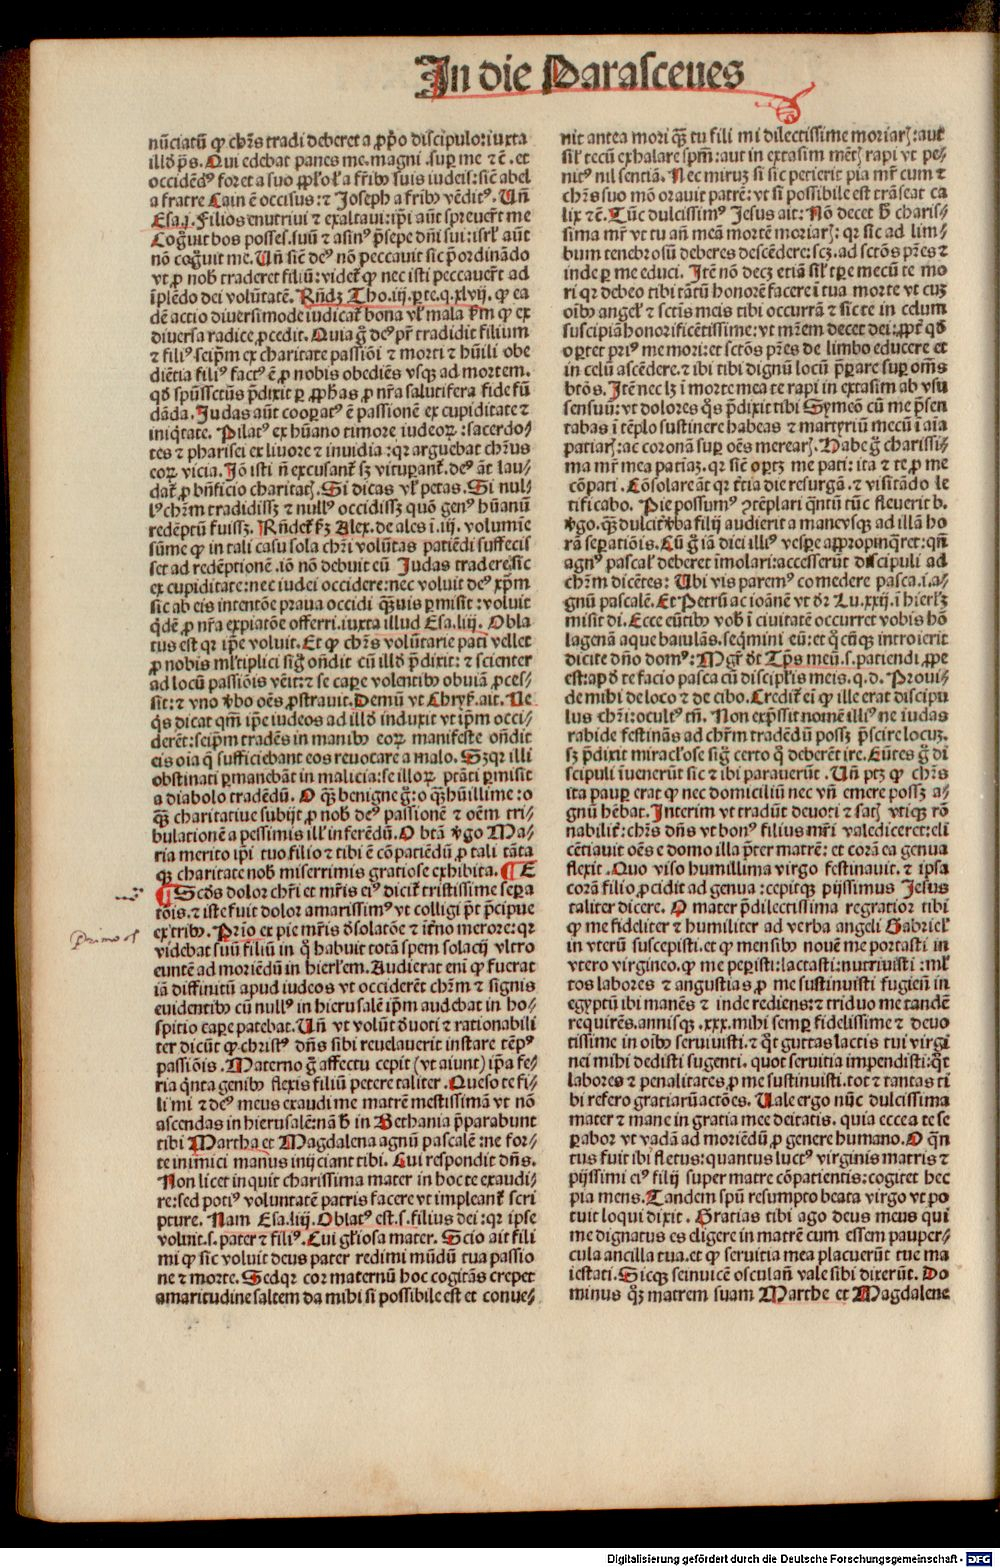 In die Parasceues
nūciatū ꝙ chr̄s tradi deberet a ꝓp̄o discipulo: iuxta
illd̄ ps̄. Qui edebat panes me. magni .suꝑ me ⁊c̄. et
occidēdꝰ foret a suo ꝓp̄ło ła fr̄ibꝰ suis iudeis: sic̄ abel
a fratre Cain ē occisus: ⁊ Joseph a fr̄ibꝰ vēditꝰ. Un̄
Esa.j. Filios enutriui ⁊ exaltaui: ip̄i aūt spreuer̄t me
Cog̊uit bos posses. suū ⁊ asinꝰ p̄sepe dn̄i sui: isrł aūt
nō cog̊uit me. Un̄ sic̄ deꝰ nō peccauit sic p̄ordinādo
vt ꝓ nob̄ traderet filiū: videt̄ ꝙ nec isti peccauer̄t ad
īplēdo dei volūtatē. Rn̄dꝫ Tho.iij. ꝑte.q.xlvij. ꝙ ea
dē actio diuersimode iudicat̄ bona vł mala km̄ ꝙ ex
diuersa radice ꝓcedit. Quia g̊ deꝰ pr̄ tradidit filium
⁊ filiꝰ seip̄m ex charitate passiōi ⁊ morti ⁊ hūili obe
diētia filiꝰ factꝰ ē ꝓ nobis obediēs vsqꝫ ad mortem.
qd̄ spūssctūs p̄dixit ꝑ ꝓphas ꝓ nr̄a salutifera fide fū
dāda. Judas aūt cooꝑatꝰ ē passionē ex cupiditate ⁊
iniq̄tate. Pilatꝰ ex hūano timore iudeoꝝ: sacerdo⸗
tes ⁊ pharisei ex liuore ⁊ inuidia: qr arguebat chr̄us
eoꝝ vicia. Jō isti n̄ excusant̄ sꝫ vituꝑant̄. deꝰ āt lau⸗
dat̄ ꝓ bn̄ficio charitatꝭ. Si dicas vł petas. Si nul⸗
lꝰ chr̄m tradidissꝫ ⁊ nullꝰ occidissꝫ quō genꝰ hūanū
redēptū fuissꝫ. Rn̄det km̄ Alex. de ales ī.iij. volumīe
sūme ꝙ in tali casu sola chr̄i volūtas patiēdi suffecis
set ad redēptionē. iō nō debuit eū Judas tradere: sic
ex cupiditate: nec iudei occidere: nec voluit deꝰ xp̄m
sic ab eis intentōe praua occidi q̄ꝫuis ꝑmisit: voluit
q̄dē ꝓ nr̄a expiatōe offerri. iuxta illud Esa.liij. Obla
tus est qr ip̄e voluit. Et ꝙ chr̄s volūtarie pati vellet
ꝓ nobis mł́tiplici sig̊ on̄dit cū illd̄ p̄dixit: ⁊ scienter
ad locū passiōis vēit: ⁊ se caꝑe volentibꝰ obuiā ꝓces⸗
sit: ⁊ vno v̄bo oēs ꝓstrauit. Demū vt Chrys̄. ait. Ne
q̄s dicat qm̄ ip̄e iudeos ad illd̄ induxit vt ip̄m occi⸗
derēt: seip̄m tradēs in manibꝰ eoꝝ manifeste on̄dit
eis oīa q̄ sufficiebant eos reuocare a malo. Sꝫqr illi
obstinati ꝑmanebāt in malicia: se illoꝝ ptāti ꝑmisit
a diabolo tradēdū. O q̄ꝫ benigne g̊: o q̄ꝫ hūillime: o
q̄ꝫ charitatiue subijt ꝓ nob̄ deꝰ passionē ⁊ oēm tri⸗
bulationē a pessimis ill̄ inferēdū. O btā v̄go Ma⸗
ria merito ip̄i tuo filio ⁊ tibi ē cōpatiēdū ꝓ tali tāta
qꝫ charitate nob̄ miserrimis gratiose exhibita. ¶ E
¶ Scd̄s dolor chr̄i et mr̄is eiꝰ dicit̄ tristissime seꝑa
tōis. ⁊ iste fuit dolor amarissimꝰ vt colligi p̄t p̄cipue
ex tribꝰ. Prīo ex pie mr̄is d̄solatōe ⁊ it̄no merore: qr
videbat suū filiū in q̊ habuit totā spem solacij vltro
euntē ad moriēdū in hierłem. Audierat enī ꝙ fuerat
iā diffinitū apud iudeos vt occiderēt chr̄m ⁊ signis
euidentibꝰ cū nullꝰ in hierusalē ip̄m audebat in ho⸗
spitio caꝑe patebat. Un̄ vt volūt d̄uoti ⁊ rationabili
ter dicūt ꝙ christꝰ dn̄s sibi reuelauerit instare tēpꝰ
passiōis. Materno g̊ affectu cepit (vt aiunt) ip̄a fe⸗
ria q̄nta genibꝰ flexis filiū petere taliter. Queso te fi⸗
li mi ⁊ deꝰ meus exaudi me matrē mestissimā vt nō
ascendas in hierusalē: nā h̄ in Bethania p̄parabunt
tibi Martha et Magdalena agnū pascalē: ne for⸗
te inimici manus inijciant tibi. Cui respondit dn̄s.
Non licet inquit charissima mater in hoc te exaudi⸗
re: sed potiꝰ voluntatē patris facere vt impleant̄ scri
pture. Nam Esa.liij. Oblatꝰ est .s. filius dei: qr ipse
voluit .s. pater ⁊ filiꝰ. Cui głiosa mater. Scio ait fili
mi ꝙ sic voluit deus pater redimi mūdū tua passio
ne ⁊ morte. Sedqr cor maternū hoc cogitās crepet
amaritudine saltem da mihi si possibile est et conue⸗
Primo ex
nit antea mori q̄ꝫ tu fili mi dilectissime moriarꝭ: aut
sił tecū exhalare spm̄: aut in extasim mētꝭ rapi vt pe⸗
nitꝰ nil sentiā. Nec miruꝫ si sic petierit pia mr̄ cum ⁊
chr̄s suo mō orauit patrē: vt si possibile est trāseat ca
lix ⁊c̄. Tūc dulcissimꝰ Jesus ait: Nō decet h̄ charis⸗
sima mr̄ vt tu an̄ meā mortē moriarꝭ: qr sic ad lim⸗
bum tenebrosū deberes descēdere: scꝫ. ad sctōs pr̄es ⁊
inde ꝑ me educi. Itē nō decꝫ etiā sił tꝑe mecū te mo
ri qr debeo tibi tātū honorē facere ī tua morte vt cuꝫ
oībꝰ angeł ⁊ sctis meis tibi occurrā ⁊ sic te in celum
suscipiā honorificētissime: vt mr̄em decet dei: ꝓpt̄ qd̄
oportet priꝰ me mori: et sctōs pr̄es de limbo educere et
in celū ascēdere. ⁊ ibi tibi dignū locū p̄parare suꝑ om̄s
btōs. Itē nec lꝫ ī morte mea te rapi in extasim ab vsu
sensuū: vt dolores q̊s p̄dixit tibi Symeō cū me p̄sen
tabas ī tēplo sustinere habeas ⁊ martyriū mecū ī aīa
patiarꝭ: ac coronā suꝑ oēs merearꝭ. Habe g̊ charissi⸗
ma mr̄ mea patiaꝫ. qr sic̄ oportꝫ me pati: ita ⁊ te ꝓ me
cōpati. Cōsolare āt qr t̄tia die resurgā. ⁊ visitādo le
tificabo. Pie possumꝰ ꝯtēplari q̄ntū tūc fleuerit b.
v̄go. q̄ꝫ dulcit̄ v̄ba filij audierit a mane vsqꝫ ad illā ho
rā seꝑatiōis. Cū g̊ iā diei illiꝰ vespe appropinq̄ret: qn̄
agnꝰ pascał deberet īmolari: accesserūt discipuli ad
chr̄m dicētes: Ubi vis paremꝰ comedere pasca.i.a⸗
gnū pascalē. Et Petrū ac ioānē vt dr̄ Lu.xxij. ī hierłꝫ
misit di. Ecce eūtibꝰ vob̄ ī ciuitatē occurret vobis hō
lagenā aque baiulās. seq̄mini eū: et q̊cūqꝫ introierit
dicite dn̄o domꝰ: Mgr̄ d̄t Tp̄s meū .s. patiendi ꝓpe
est: apd̄ te facio pasca cū discipłis meis. q.d. Proui⸗
de mihi de loco ⁊ de cibo. Credit̄ ei ꝙ ille erat discipu
lus chr̄i: occultꝰ tn̄. Non exp̄ssit nomē illiꝰ ne iudas
rabide festinās ad chr̄m tradēdū possꝫ p̄scire locuꝫ.
sꝫ p̄dixit miracłose sig̊ certo q̊ deberēt ire. Eūtes g̊ di
scipuli īuenerūt sic ⁊ ibi parauerūt. Un̄ ptꝫ ꝙ chr̄s
ita pauꝑ erat ꝙ nec domiciliū nec vn̄ emere possꝫ a⸗
gnū hēbat. Interim vt tradūt deuoti ⁊ satꝭ vtiqꝫ rō
nabilit̄: chr̄s dn̄s vt bonꝰ filius mr̄i valediceret: eli
cētiauit oēs e domo illa p̄ter matrē: et corā ea genua
flexit. Quo viso humillima virgo festinauit. ⁊ ipsa
corā filio ꝓcidit ad genua: cepitqꝫ pijssimus Jesus
taliter dicere. O mater p̄dilectissima regratior tibi
ꝙ me fideliter ⁊ humiliter ad verba angeli Gabrieł
in vterū suscepisti. et ꝙ mensibꝰ nouē me portasti in
vtero virgineo. ꝙ me peꝑisti: lactasti: nutriuisti: mł
tos labores ⁊ angustias ꝓ me sustinuisti fugiēs̄ in
egyptū ibi manēs ⁊ inde rediens: ⁊ triduo me tandē
requirēs. annisqꝫ .xxx. mihi semꝑ fidelissime ⁊ deuo
tissime in oībꝰ seruiuisti. ⁊ q̊t guttas lactis tui virgi
nei mihi dedisti sugenti. quot seruitia impendisti: q̊t
labores ⁊ penalitates ꝓ me sustinuisti. tot ⁊ tantas ti
bi refero gratiarū actōes. Uale ergo nūc dulcissima
mater ⁊ mane in gratia mee deitatis. quia ecce a te se
ꝑabor vt vadā ad moriēdū ꝓ genere humano. O q̄n
tus fuit ibi fletus: quantus luctꝰ virginis matris ⁊
pijssimi eiꝰ filij super matre cōpatientis: cogitet hec
pia mens. Tandem spū resumpto beata virgo vt po
tuit loqui dixit. Gratias tibi ago deus meus qui
me dignatus es eligere in matrē cum essem pauper⸗
cula ancilla tua. et ꝙ seruitia mea placuerūt tue ma
iestati. Sicqꝫ seinuicē osculan̄ vale sibi dixerūt. Do
minus qꝫ matrem suam Marthe et Magdalene
Digitalisierung gefördert durch die Deutsche Forschungsgemeinschaft - DFG